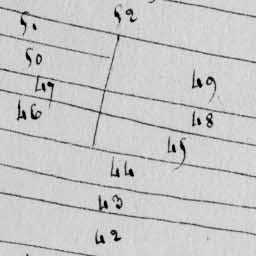 51 52
50
47 49
46 48
45
44
43
42